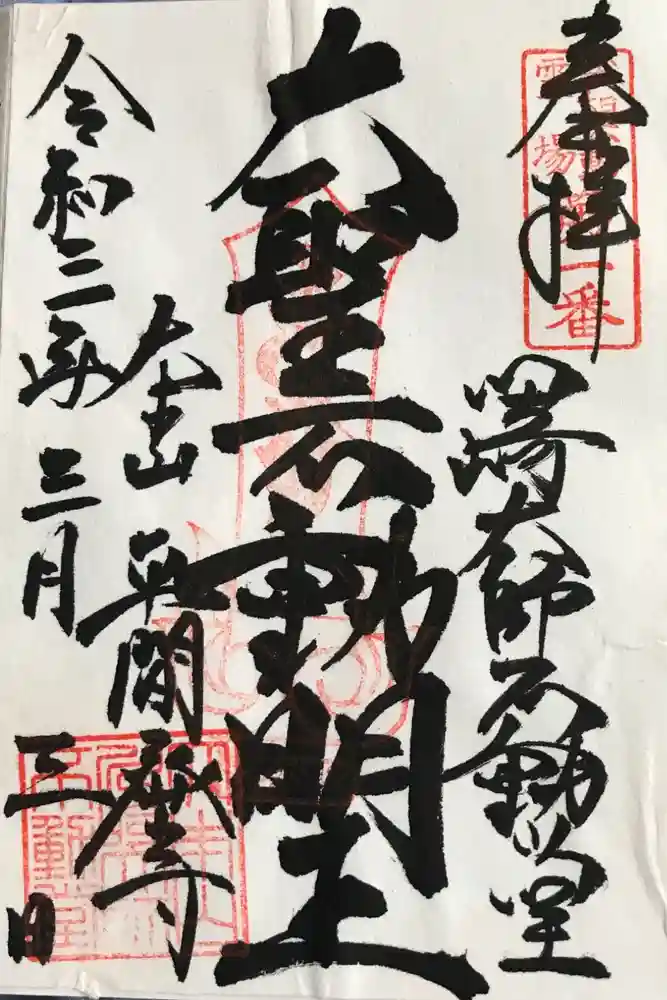 奉拝
川崎大師不動堂
大聖不動明王
大本山平間寺
令和二年三月三日
第一番